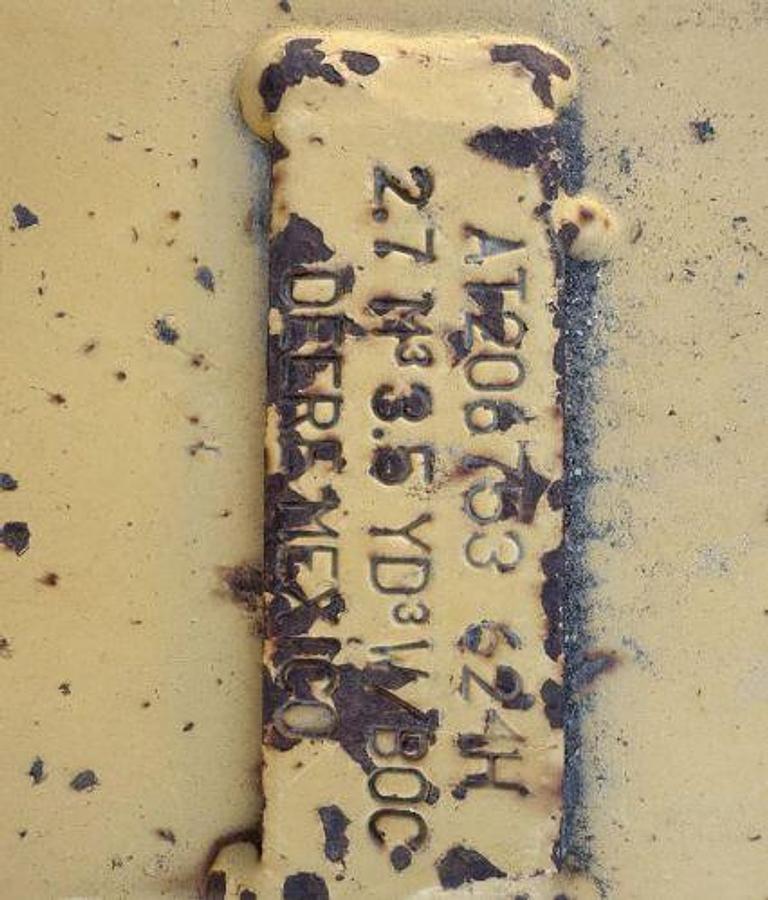 AT206753 624H
2.7 M³ 3.5 YD³ W BOC
DEERE MEXICO